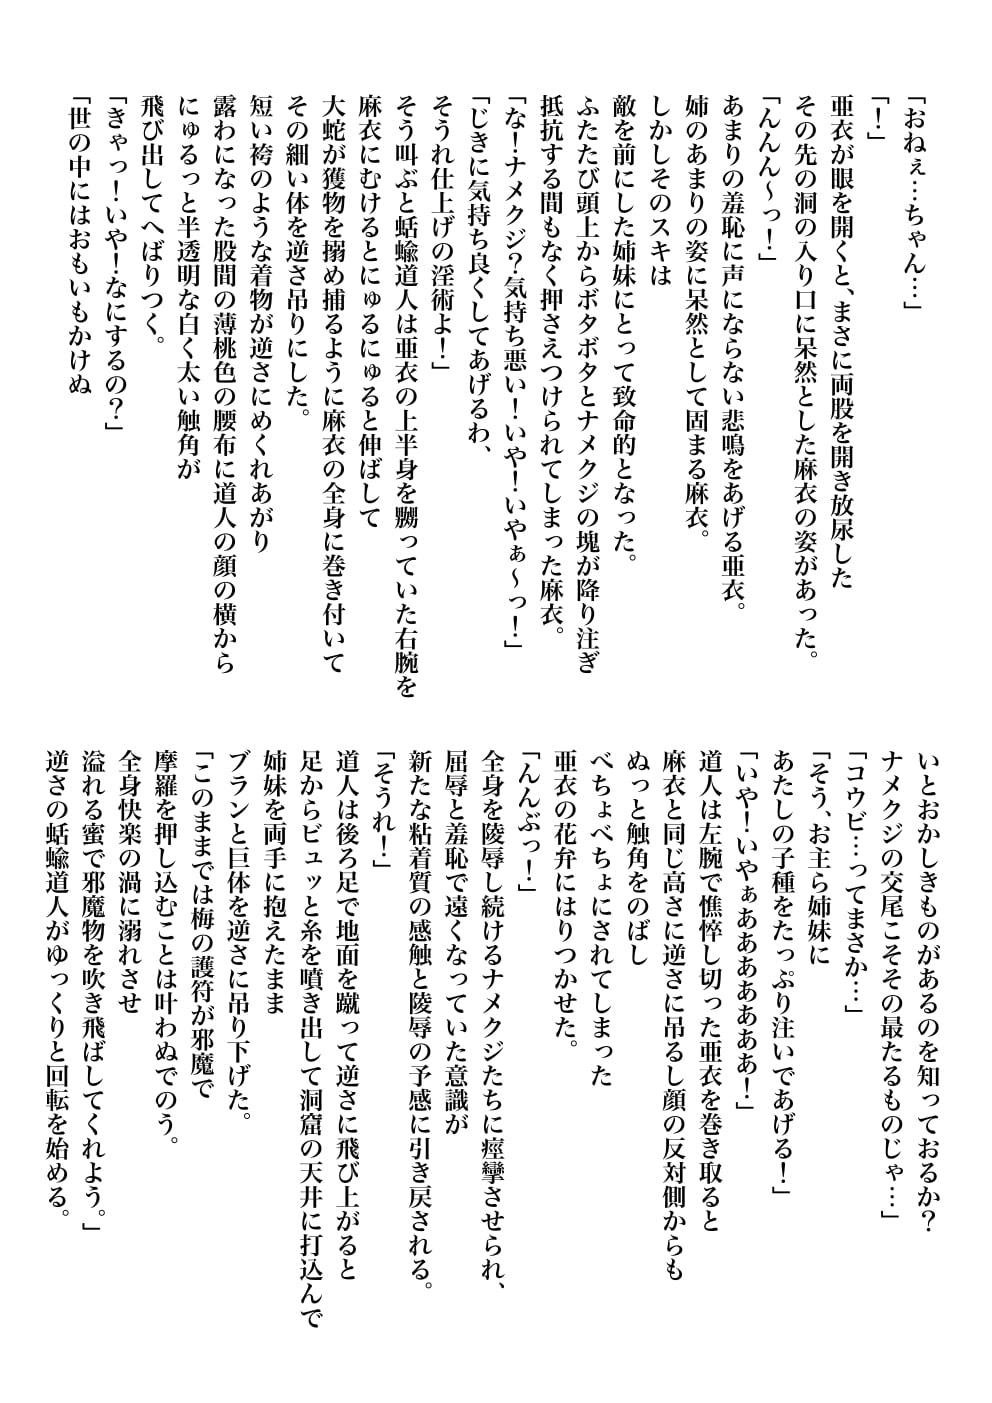 「おねぇ…ちゃん…」
「！」
亜衣が眼を開くと、まさに両股を開き放尿した
その先の洞の入り口に呆然とした麻衣の姿があった。
「んんん～っ！」
あまりの羞恥に声にならない悲鳴をあげる亜衣。
姉のあまりの姿に呆然として固まる麻衣。
しかしそのスキは
敵を前にした姉妹にとって致命的となった。
ふたたび頭上からボタボタとナメクジの塊が降り注ぎ
抵抗する間もなく押さえつけられてしまった麻衣。
「な！ナメクジ？気持ち悪い！いや！いやぁ～っ！」
「じきに気持ち良くしてあげるわ、
そうれ仕上げの淫術よ！」
そう叫ぶと蛞蝓道人は亜衣の上半身を嬲っていた右腕を
麻衣にむけるとにゅるにゅると伸ばして
大蛇が獲物を搦め捕るように麻衣の全身に巻き付いて
その細い体を逆さ吊りにした。
短い袴のような着物が逆さにめくれあがり
露わになった股間の薄桃色の腰布に道人の顔の横から
にゅるっと半透明な白く太い触角が
飛び出してへばりつく。
「きゃっ！いや！なにするの？」
「世の中にはおもいもかけぬ
いとおかしきものがあるのを知っておるか？
ナメクジの交尾こそその最たるものじゃ…」
「コウビ…ってまさか…」
「そう、お主ら姉妹に
あたしの子種をたっぷり注いであげる！」
「いや！いやぁあああああああ！」
道人は左腕で憔悴し切った亜衣を巻き取ると
麻衣と同じ高さに逆さに吊るし顔の反対側からも
ぬっと触角をのばし
べちょべちょにされてしまった
亜衣の花弁にはりつかせた。
「んんぶっ！」
全身を陵辱し続けるナメクジたちに痙攣させられ、
屈辱と羞恥で遠くなっていた意識が
新たな粘着質の感触と陵辱の予感に引き戻される。
「そうれ！」
道人は後ろ足で地面を蹴って逆さに飛び上がると
足からビュッと糸を噴き出して洞窟の天井に打込んで
姉妹を両手に抱えたまま
ブランと巨体を逆さに吊り下げた。
「このままでは梅の護符が邪魔で
摩羅を押し込むことは叶わぬでのう。
全身快楽の渦に溺れさせ
溢れる蜜で邪魔物を吹き飛ばしてくれよう。」
逆さの蛞蝓道人がゆっくりと回転を始める。